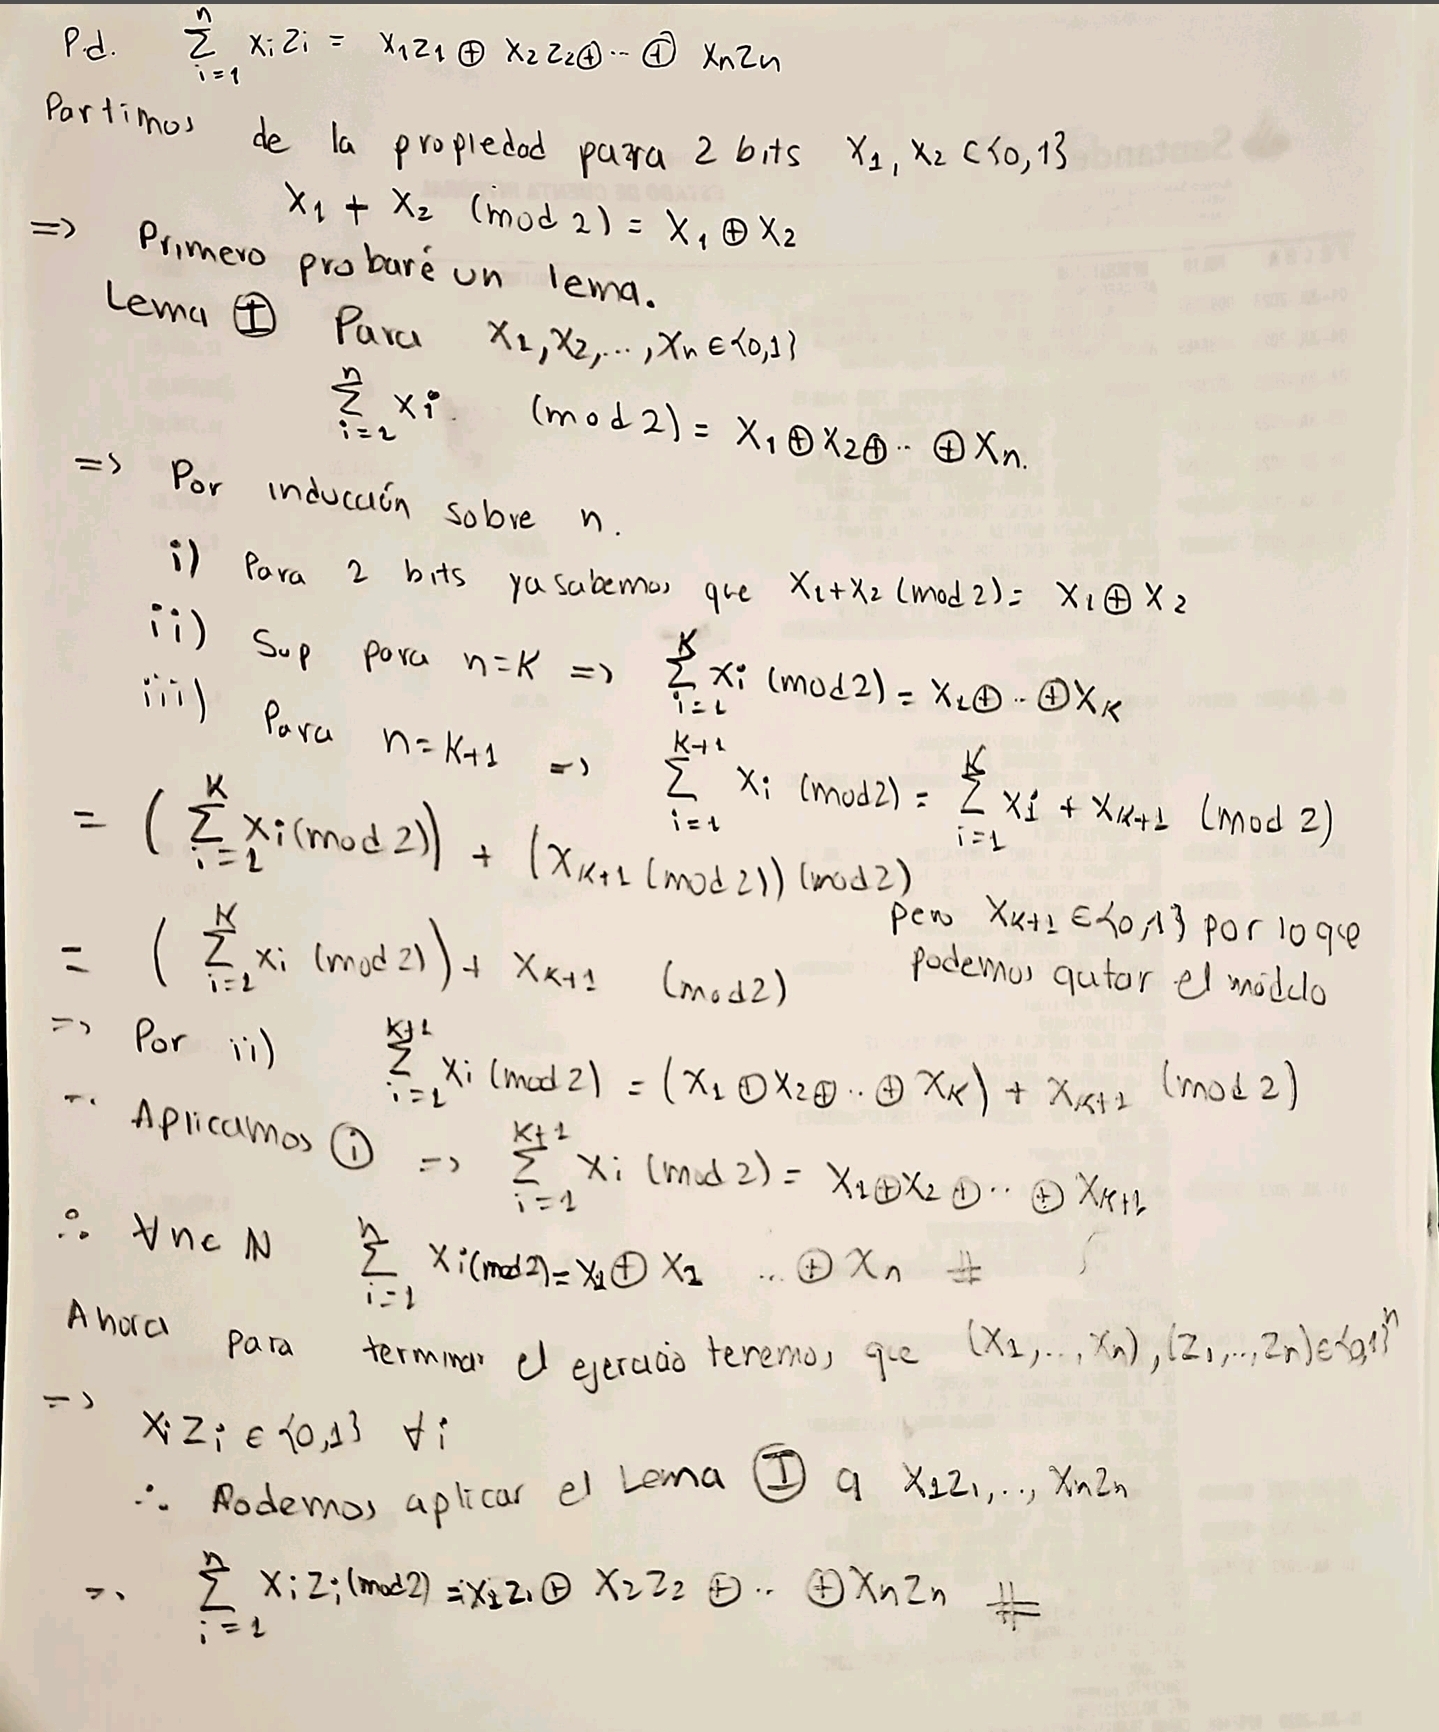 P.d. n∑i=1 xizi = x1z1 ⊕ x2z2⊕ ·· ⊕ xnzn
Partimos de la propiedad para 2 bits x1, x2 ∈ {0,1}
x1 + x2 (mod 2) = x1 ⊕ x2
=> Primero probaré un lema.
Lema Ⓘ Para x1, x2, ..., xn ∈ {0,1}
n∑i=1 xi (mod 2) = x1 ⊕ x2⊕ ·· ⊕ xn.
=> Por inducción sobre n.
i) Para 2 bits ya sabemos que x1+x2 (mod 2) = x1 ⊕ x2
ii) Sup para n=K => K∑i=1 xi (mod 2) = x1⊕ ·· ⊕xK
iii) Para n=K+1 => K+1∑i=1 xi (mod 2) = K∑i=1 xi + xK+1 (mod 2)
= (K∑i=1 xi (mod 2)) + (xK+1 (mod 2)) (mod 2)
pero xK+1 ∈ {0,1} por lo que
= (K∑i=1 xi (mod 2)) + xK+1 (mod 2)
podemos qutar el módulo
=> Por ii) K+1∑i=1 xi (mod 2) = (x1 ⊕ x2⊕ ·· ⊕ xK) + xK+1 (mod 2)
Aplicamos ⓘ => K+1∑i=1 xi (mod 2) = x1⊕x2 ⊕ ·· ⊕ xK+1
∴ ∀n∈ℕ n∑i=1 xi(mod 2) = x1 ⊕ x2 ... ⊕ xn #
Ahora para terminar el ejercicio tenemos que (x1,..,xn),(z1,..,zn)∈{0,1}^n
=> xizi ∈ {0,1} ∀i
∴ Podemos aplicar el Lema Ⓘ a x1z1, .., xnzn
=> n∑i=1 xizi(mod 2) = x1z1 ⊕ x2z2 ⊕ ·· ⊕ xnzn #